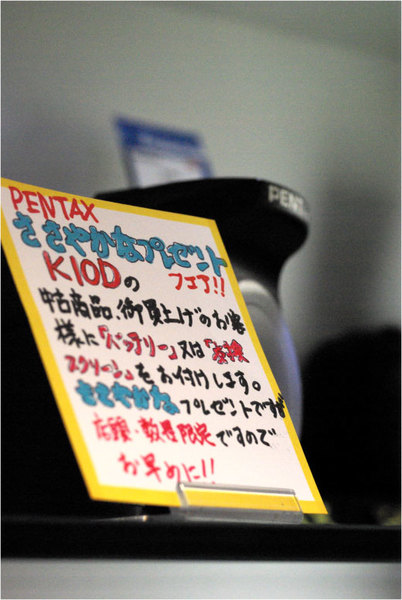 PENTAX
ささやかなプレゼント
K10Dのフェア!!
中古商品、御買上げのお客
様に『バッテリー』又は『液晶
スクリーン』をお付けします。
ささやかなプレゼントですが
店頭・数量限定ですので
お早めに!!
PENTAX